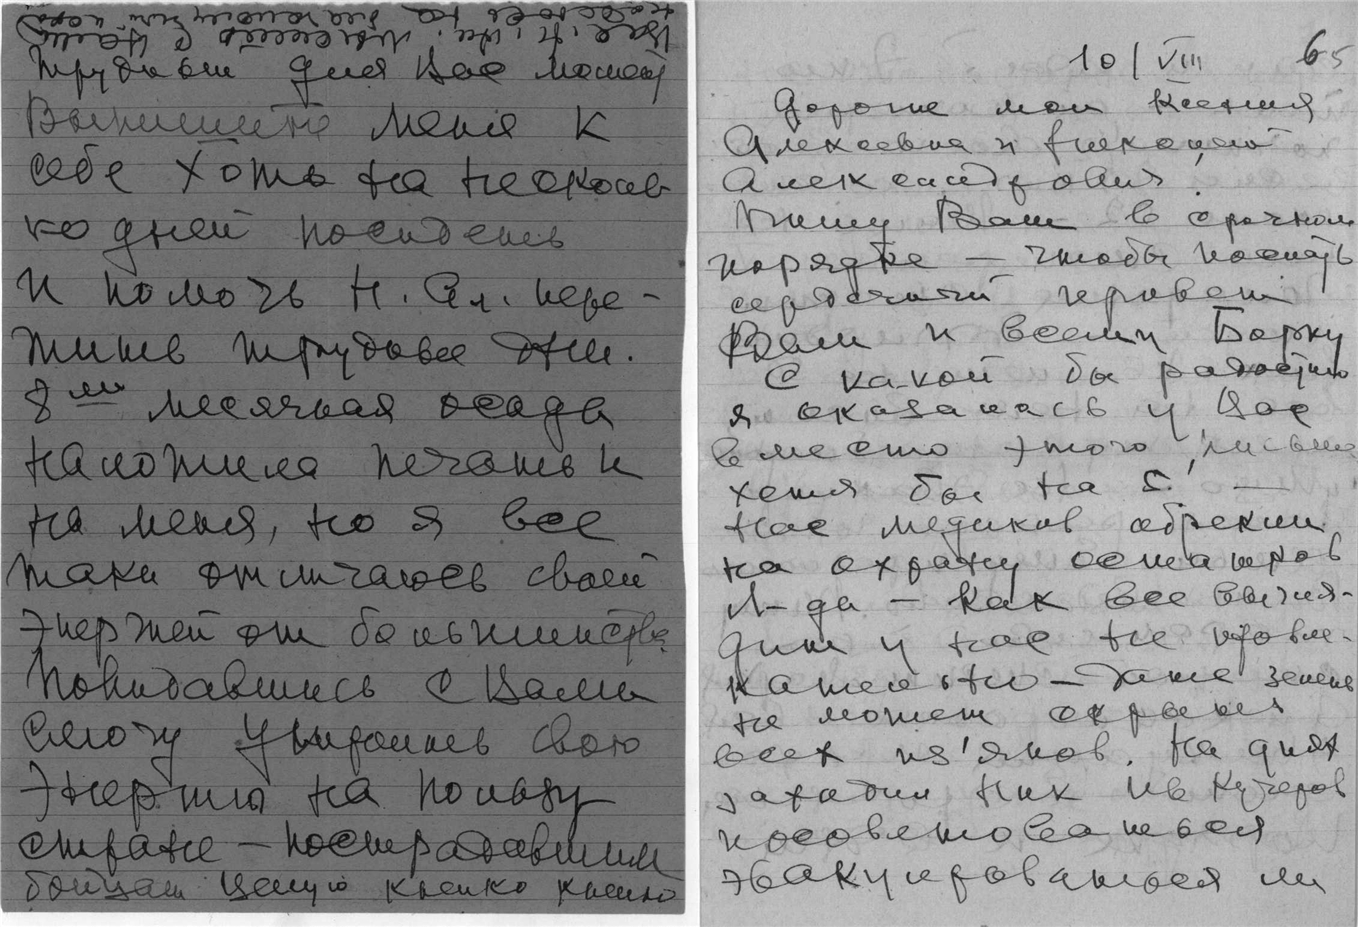 трудные дни Вас может
Выпишите меня к
себе хоть на несколь
ко дней посидеть
и помочь Н. Ал. пере-
жить трудовые дни.
8ми месячная осада
наложила печать и
на меня, но я все
таки отличаюсь своей
энержией от большинства
Повидавшись с Вами
смогу утроить свою
энержию на пользу
стране — пострадавшим
бойцам Целую крепко крепко
10/VIII 65
Дорогие мои Ксения
Алексевна и Николай
Александрович!
Пишу Вам в срочном
порядке — чтобы послать
сердечный привет
Вам и всему Борку
С какой бы радостью
я оказалась у Вас
вместо этого письма
хотя бы на 5. —
нас медиков обрекли
на охрану остатков
Л-да — как все выгля-
дит у нас не привле-
кательно — даже зелень
не может скрыть
всех из'янов. На днях
заходил Ник Ив Кучеров
посоветоваться
эвакуироваться ли